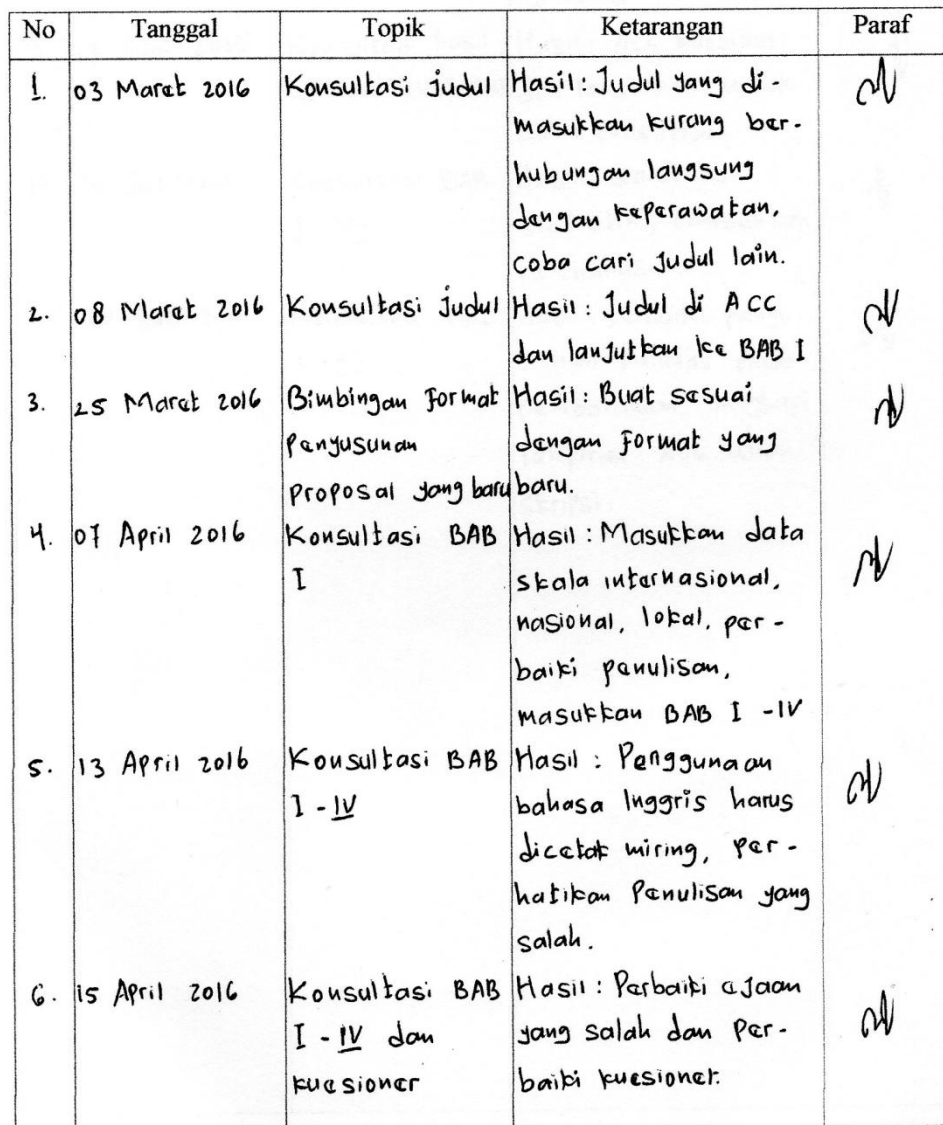 No Tanggal Topik Ketarangan Paraf
1. 03 Maret 2016 Konsultasi judul Hasil : Judul yang di-
masukkan kurang ber-
hubungan langsung
dengan keperawatan,
coba cari judul lain.
2. 08 Maret 2016 Konsultasi judul Hasil : Judul di ACC
dan lanjutkan ke BAB I
3. 25 Maret 2016 Bimbingan format Hasil : Buat sesuai
Penyusunan dengan format yang
proposal yang baru baru.
4. 07 April 2016 Konsultasi BAB Hasil : Masukkan data
I skala internasional,
nasional, lokal, per-
baiki penulisan,
masukkan BAB I - IV
5. 13 April 2016 Konsultasi BAB Hasil : Penggunaan
I - IV bahasa Inggris harus
dicetak miring, per-
hatikan Penulisan yang
salah.
6. 15 April 2016 Konsultasi BAB Hasil : Perbaiki ejaan
I - IV dan yang salah dan Per-
kuesioner baiki kuesioner.